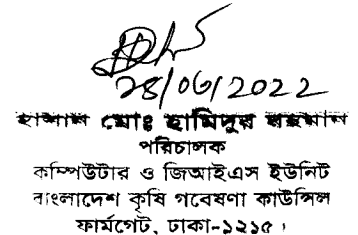 28/06/2022
হাসান মোঃ হামিদুর রহমান
পরিচালক
কম্পিউটার ও জিআইএস ইউনিট
বাংলাদেশ কৃষি গবেষণা কাউন্সিল
ফার্মগেট, ঢাকা-১২১৫।